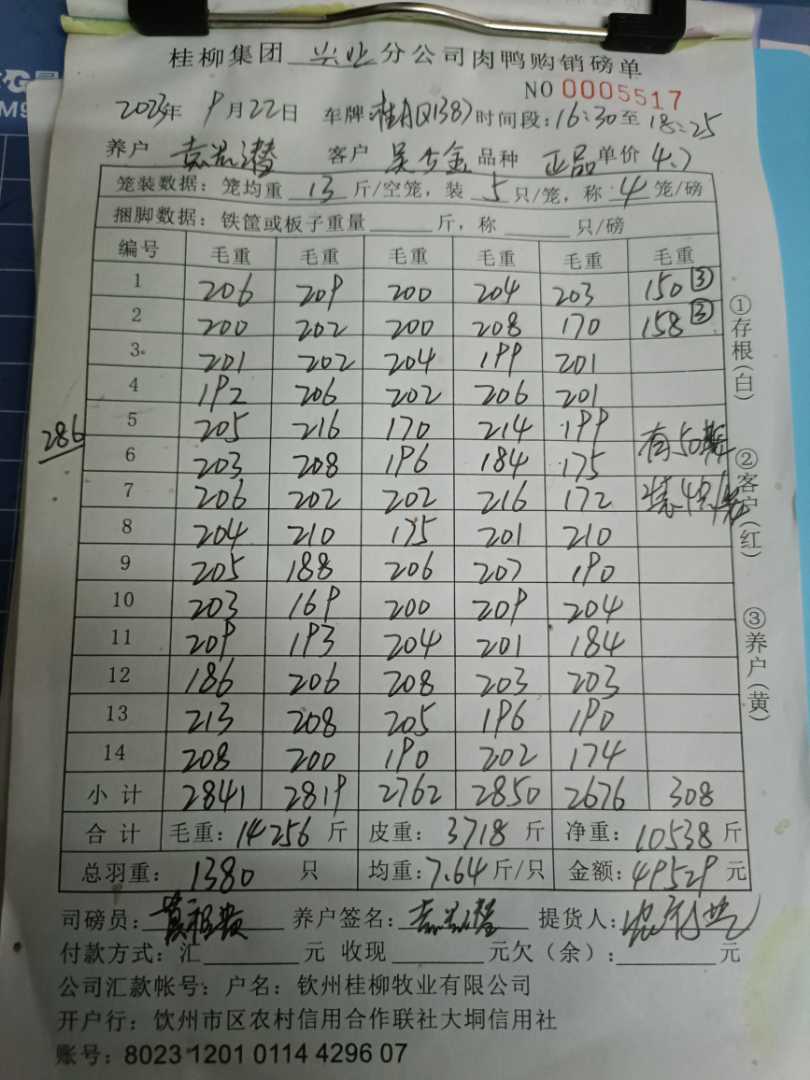 桂柳集团 兴业 分公司肉鸭购销磅单
NO 0005517
2023年 9月22日 车牌:桂AQ1387 时间段:16:30至18:25
养户 客户 吴 金 品种 正品 单价 4.7
笼装数据：笼均重 13 斤/空笼，装 5 只/笼，称 4 笼/磅
捆脚数据：铁筐或板子重量 斤，称 只/磅
编号 毛重 毛重 毛重 毛重 毛重 毛重
1 206 209 200 204 203 150③
2 200 202 200 208 170 158③
3 201 202 204 199 201
4 192 206 202 206 201
5 205 216 170 214 199
286
6 203 208 196 184 175 有50
7 206 202 202 216 172 装4只/笼
8 204 210 175 201 210
9 205 188 206 207 190
10 203 169 200 209 204
11 209 193 204 201 184
12 186 206 208 203 203
13 213 208 205 196 190
14 208 200 190 202 174
小计 2841 2819 2762 2850 2676 308
合计 毛重：14256 斤 皮重：3718 斤 净重：10538 斤
总羽重：1380 只 均重：7.64 斤/只 金额：49529 元
司磅员： 养户签名： 提货人：
付款方式：汇 元 收现 元欠（余）： 元
公司汇款帐号：户名：钦州桂柳牧业有限公司
开户行：钦州市区农村信用合作联社大垌信用社
账号：8023 1201 0114 4296 07
①存根(白)
②客户(红)
③养户(黄)